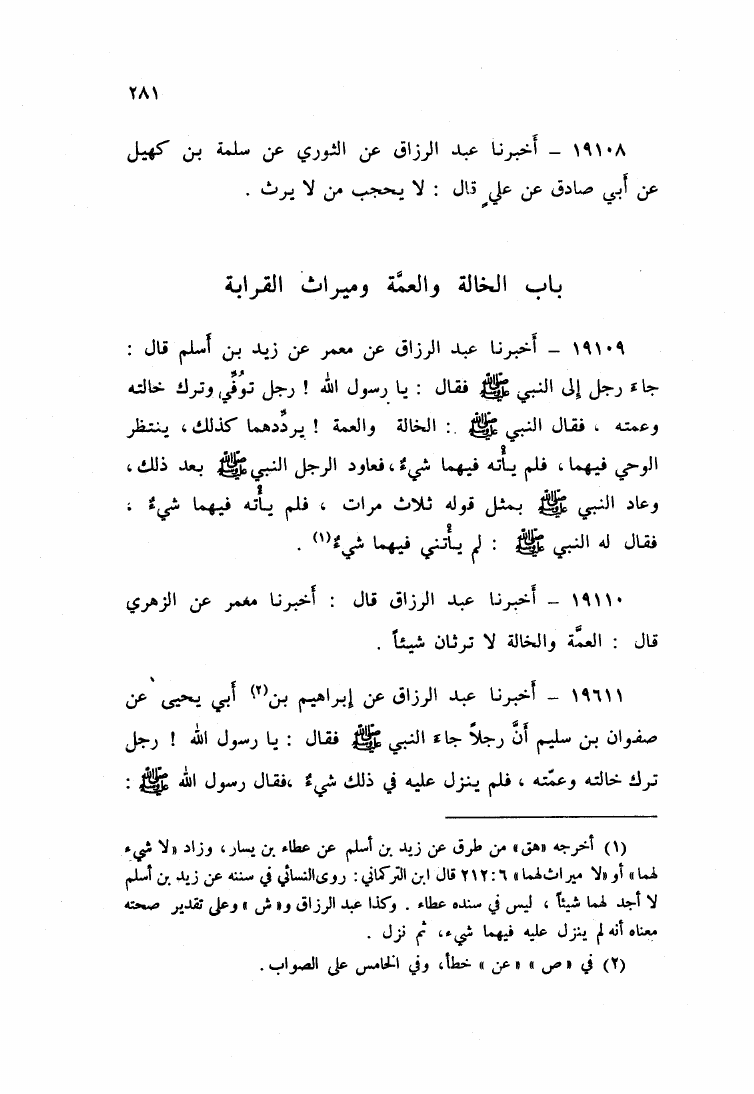 ٢٨١
١٩١٠٨ – أخبرنا عبد الرزاق عن الثوري عن سلمة بن كهيل
عن أبي صادق عن علي قال : لا يحجب من لا يرث .
باب الخالة والعمَّة وميراث القرابة
١٩١٠٩ – أخبرنا عبد الرزاق عن معمر عن زيد بن أسلم قال :
جاءَ رجل إلى النبي ﷺ فقال : يا رسول الله ! رجل توُفِّي وترك خالته
وعمته ، فقال النبي ﷺ : الخالة والعمة ! يردِّدهما كذلك ، ينتظر
الوحي فيهما ، فلم يأْته فيهما شيءٌ ، فعاود الرجل النبي ﷺ بعد ذلك ،
وعاد النبي ﷺ بمثل قوله ثلاث مرات ، فلم يأْته فيهما شيءٌ ،
فقال له النبي ﷺ : لم يأْتني فيهما شيءٌ(١) .
١٩١١٠ – أخبرنا عبد الرزاق قال : أخبرنا معمر عن الزهري
قال : العمَّة والخالة لا ترثان شيئاً .
١٩٦١١ – أخبرنا عبد الرزاق عن إبراهيم بن(٢) أبي يحيى عن
صفوان بن سليم أنَّ رجلاً جاءَ النبي ﷺ فقال : يا رسول الله ! رجل
ترك خالته وعمّته ، فلم ينزل عليه في ذلك شيءٌ ،فقال رسول الله ﷺ :
(١) أخرجه «هق» من طرق عن زيد بن أسلم عن عطاء بن يسار ، وزاد «لا شيء
لهما» أو «لا ميراث لهما» ٦:٢١٢ قال ابن التركماني : روى النسائي في سننه عن زيد بن أسلم
لا أجد لهما شيئاً ، ليس في سنده عطاء . وكذا عبد الرزاق و« ش » وعلى تقدير صحته
معناه أنه لم ينزل عليه فيهما شيء ، ثم نزل .
(٢) في « ص » « عن » خطأ، وفي الخامس على الصواب .